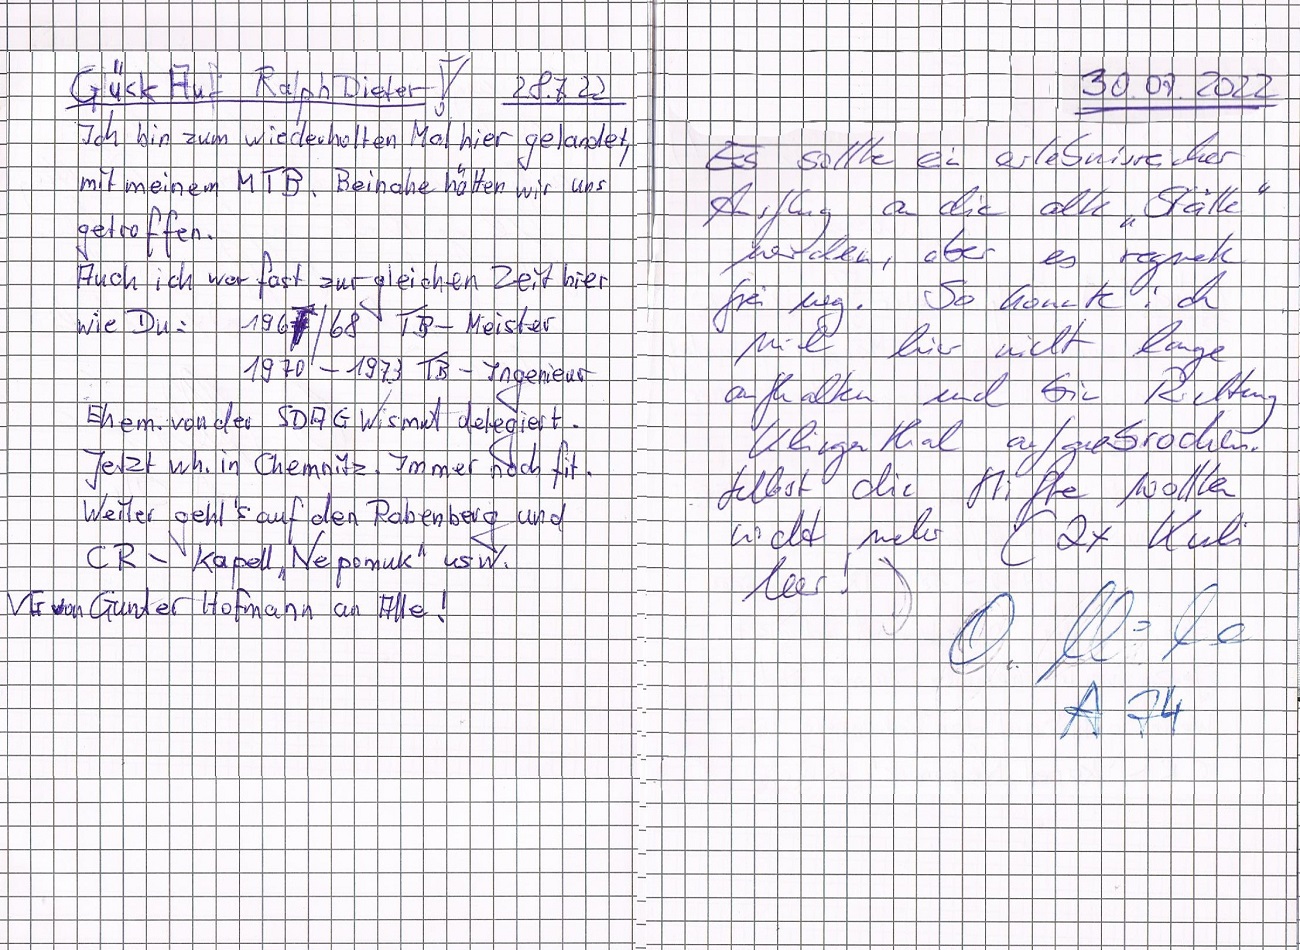 Glück Auf Ralph Dieter! 28.7.22
Ich bin zum wiederholten Mal hier gelandet,
mit meinem MTB. Beinahe hätten wir uns
getroffen.
Auch ich war fast zur gleichen Zeit hier
wie Du: 1967/68 TB-Meister
1970 - 1973 TB - Ingenieur
Ehem. von der SDAG Wismut delegiert.
Jetzt wh. in Chemnitz. Immer noch fit.
Weiter geht's auf den Rabenberg und
CR - Kapell „Nepomuk" usw.
VG von Gunter Hofmann an Alle!
30.07.2022
Es sollte ein erlebnisreicher
Ausflug an die alte „Stätte"
werden, aber es regnete
frei weg. So konnte ich
mich hier nicht lange
aufhalten und bin Richtung
Klingenthal aufgebrochen.
Selbst die Stifte wollten
nicht mehr (2x Kuli
leer!)
O.
A 74